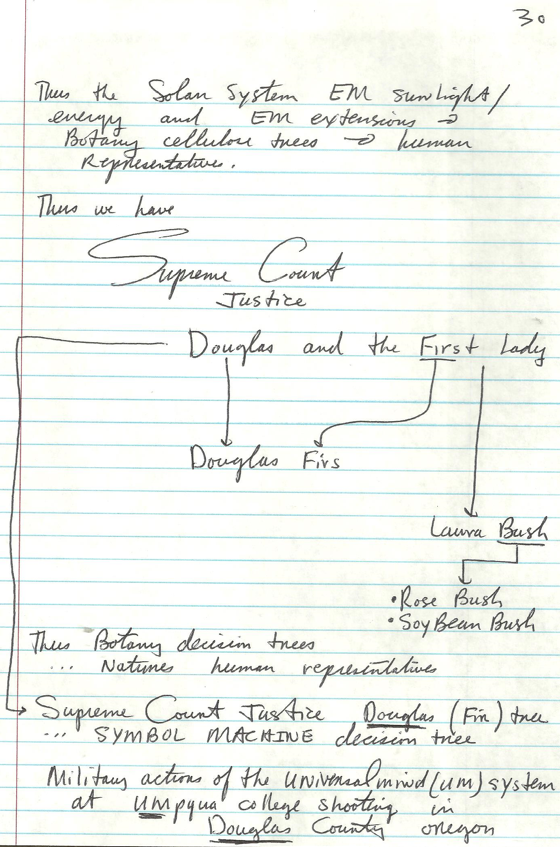 30
Thus the Solar System EM sunlight/
energy and EM extensions →
Botany cellulose trees → human
Representatives.
Thus we have
Supreme Court
Justice
Douglas and the First Lady
Douglas Firs
Laura Bush
• Rose Bush
• SoyBean Bush
Thus Botany decision trees
... Natures human representatives
Supreme Court Justice Douglas (Fir) tree
... SYMBOL MACHINE decision tree
Military actions of the universalmind (UM) system
at UMpqua college shooting in
Douglas County oregon